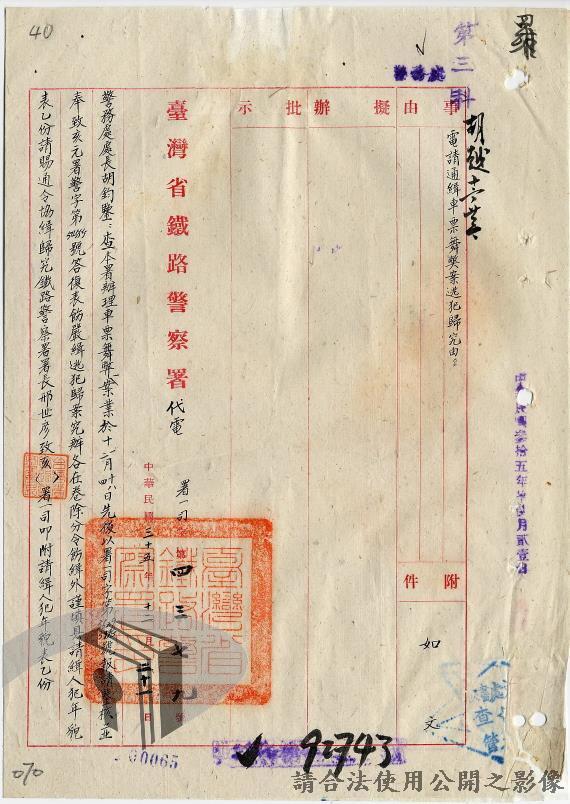 羅
40
第三科
胡越
事由
擬辦
批示
電請通緝車票舞弊案逃犯歸究由
附件
如文
中華民國叁拾五年
臺灣省鐵路警察署代電
署一司
第四三七九號
中華民國三十五年十二月二十一日
警務處處長胡鈞鑒:查本署辦理車票舞弊案業於十二月
先後以署一司字第
號報請鑒核並
奉致亥元署警字第
號答復表飭嚴緝逃犯歸案究辦各在卷除分令飭緝外謹填具請緝人犯年貌
表乙份請賜通令協緝歸究鐵路警察署署長邢世彥致亥
署一司叩附請緝人犯年貌表乙份
查管
00065
92743
070
請合法使用公開之影像